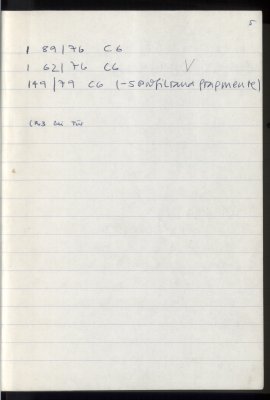 5
1 89/76 C6
1 62/76 C6 V
149/79 C6 (-5
bei Tür